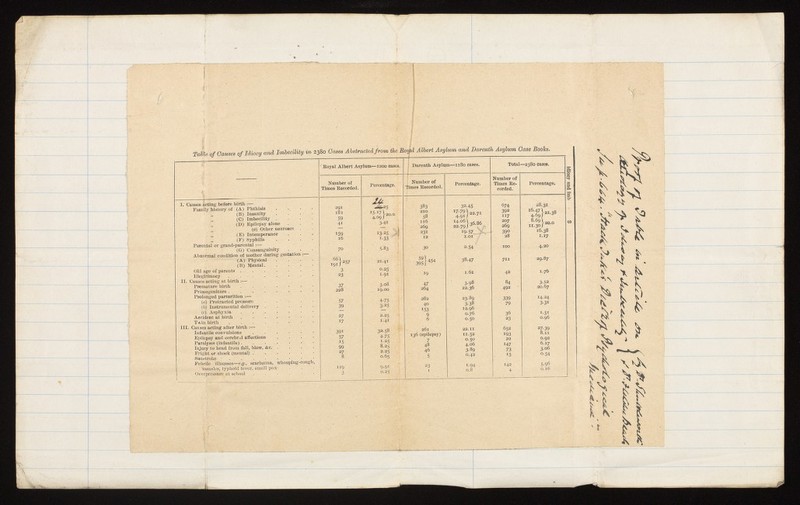 Table of Causes of Idiocy and Imbecility in 2380 Cases Abstracted from the Royal Albert Asylum and Darenth Asylum Case Books.
Royal Albert Asylum—1200 cases. Darenth Asylum—1180 cases. Total—2380 cases.
Number of Times Recorded. Percentage. Number of Times Recorded. Percentage. Number of Times Recorded. Percentage.
I. Causes acting before birth:—
Family history of (A) Phthisis 291 24 383 32.45 674 28.31
" (B) Insanity 182 15.17 210 17.79 392 16.47
" (C) Imbecility 59 4.92 58 4.91 117 4.91
" (D) Epilepsy alone 41 3.42 166 14.06 207 8.69
" " or Other neuroses — — 269 22.79 269 11.30
" (E) Intemperance 159 13.25 231 19.57 390 16.38
" (F) Syphilis 16 1.33 12 1.02 28 1.17
Parental or grand-parental:—
(G) Consanguinity 70 5.83 30 2.54 100 4.20
Abnormal condition of mother during gestation:—
(A) Physical
(B) Mental 257 21.41 454 38.47 711 29.87
Old age of parents 3 0.25
Illegitimacy 23 1.92 19 1.61 42 1.76
II. Causes acting at birth:—
Premature birth 37 3.08 47 3.98 84 3.52
Primogeniture 228 19.00 264 22.36 492 20.67
Prolonged parturition:—
(a) Protracted pressure 57 4.75 282 23.89 339 14.24
(b) Instrumental delivery 39 3.25 40 3.38 79 3.31
(c) Asphyxia — — 153 12.96
Accident at birth 27 2.25 9 0.76 36 1.51
Twin birth 17 1.41 6 0.50 23 0.96
III. Causes acting after birth:—
Infantile convulsions 391 32.58 261 22.11 652 27.39
Epilepsy and cerebral affections 57 4.75 136 (epilepsy) 11.52 193 8.11
Paralysis (infantile) 15 1.25 7 0.59 22 0.92
Injury to head from fall, blow, &c. 99 8.25 48 4.06 147 6.17
Fright or shock (mental) 27 2.25 46 3.89 73 3.06
Sunstroke 8 0.65 5 0.42 13 0.54
Febrile illnesses—e.g., scarlatina, whooping-cough,
measles, typhoid fever, small-pox 119 9.91 23 1.94 142 5.96
Overpressure at school 3 0.25 1 4 0.16
Proof of Table in Article on
Ætiology of Idiocy & Imbecility
by Dr Shuttleworth
& Dr Fletcher Beach
in Hack Tuke's Dict. of Psychological
Medicine.